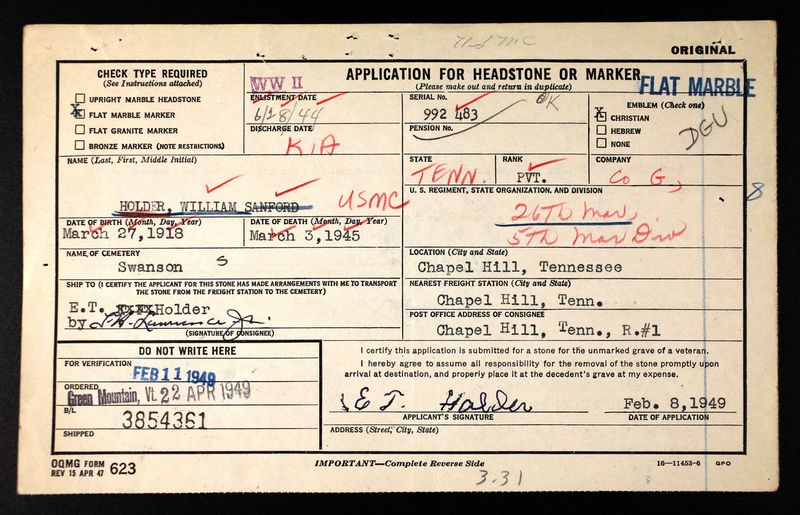 USMC
ORIGINAL
CHECK TYPE REQUIRED
(See Instructions attached)
UPRIGHT MARBLE HEADSTONE
X FLAT MARBLE MARKER
FLAT GRANITE MARKER
BRONZE MARKER (NOTE RESTRICTIONS)
WW II
APPLICATION FOR HEADSTONE OR MARKER
(Please make out and return in duplicate)
FLAT MARBLE
ENLISTMENT DATE
6/28/44
DISCHARGE DATE
KIA
SERIAL No.
992 483
OK
PENSION No.
EMBLEM (Check one)
X CHRISTIAN
HEBREW
NONE
DGU
NAME (Last, First, Middle Initial)
HOLDER, WILLIAM SANFORD
USMC
STATE
TENN.
RANK
PVT.
COMPANY
Co G,
8
U. S. REGIMENT, STATE ORGANIZATION, AND DIVISION
26Th Mar,
5Th Mar Div
DATE OF BIRTH (Month, Day, Year)
March 27,1918
DATE OF DEATH (Month, Day, Year)
March 3,1945
NAME OF CEMETERY
Swanson S
LOCATION (City and State)
Chapel Hill, Tennessee
SHIP TO (I CERTIFY THE APPLICANT FOR THIS STONE HAS MADE ARRANGEMENTS WITH ME TO TRANSPORT
THE STONE FROM THE FREIGHT STATION TO THE CEMETERY)
E.T. Holder
by
(SIGNATURE OF CONSIGNEE)
NEAREST FREIGHT STATION (City and State)
Chapel Hill, Tenn.
POST OFFICE ADDRESS OF CONSIGNEE
Chapel Hill, Tenn., R.#1
DO NOT WRITE HERE
FOR VERIFICATION
FEB 11 1949
ORDERED
Green Mountain, Vt. 22 APR 1949
B/L
3854361
SHIPPED
I certify this application is submitted for a stone for the unmarked grave of a veteran.
I hereby agree to assume all responsibility for the removal of the stone promptly upon
arrival at destination, and properly place it at the decedent's grave at my expense.
E T. Holder
Feb. 8,1949
APPLICANT'S SIGNATURE
DATE OF APPLICATION
ADDRESS (Street, City, State)
OQMG FORM
REV 15 APR 47 623
IMPORTANT—Complete Reverse Side
16—11453-6 GPO
3.31